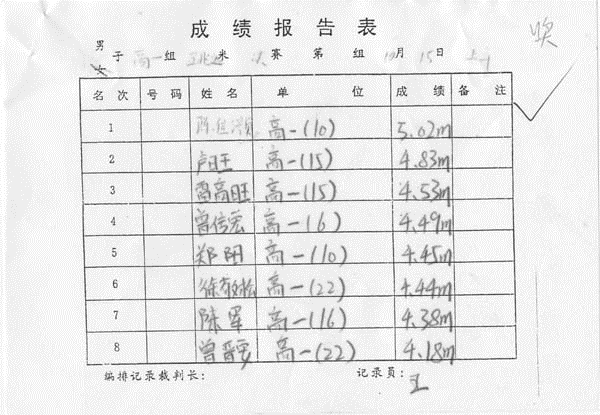 奖
成绩报告表
男子高一组 跳远 米 决赛 第 组 10月15日 上午
名次 号码 姓名 单位 成绩 备注
1 高一(10) 5.02m
2 卢旺 高一(15) 4.83m
3 雷高旺 高一(15) 4.53m
4 曾信宏 高一(6) 4.49m
5 郑阳 高一(10) 4.45m
6 徐敬松 高一(22) 4.44m
7 陈军 高一(16) 4.38m
8 曾晋 高一(22) 4.18m
编排记录裁判长: 记录员: 王